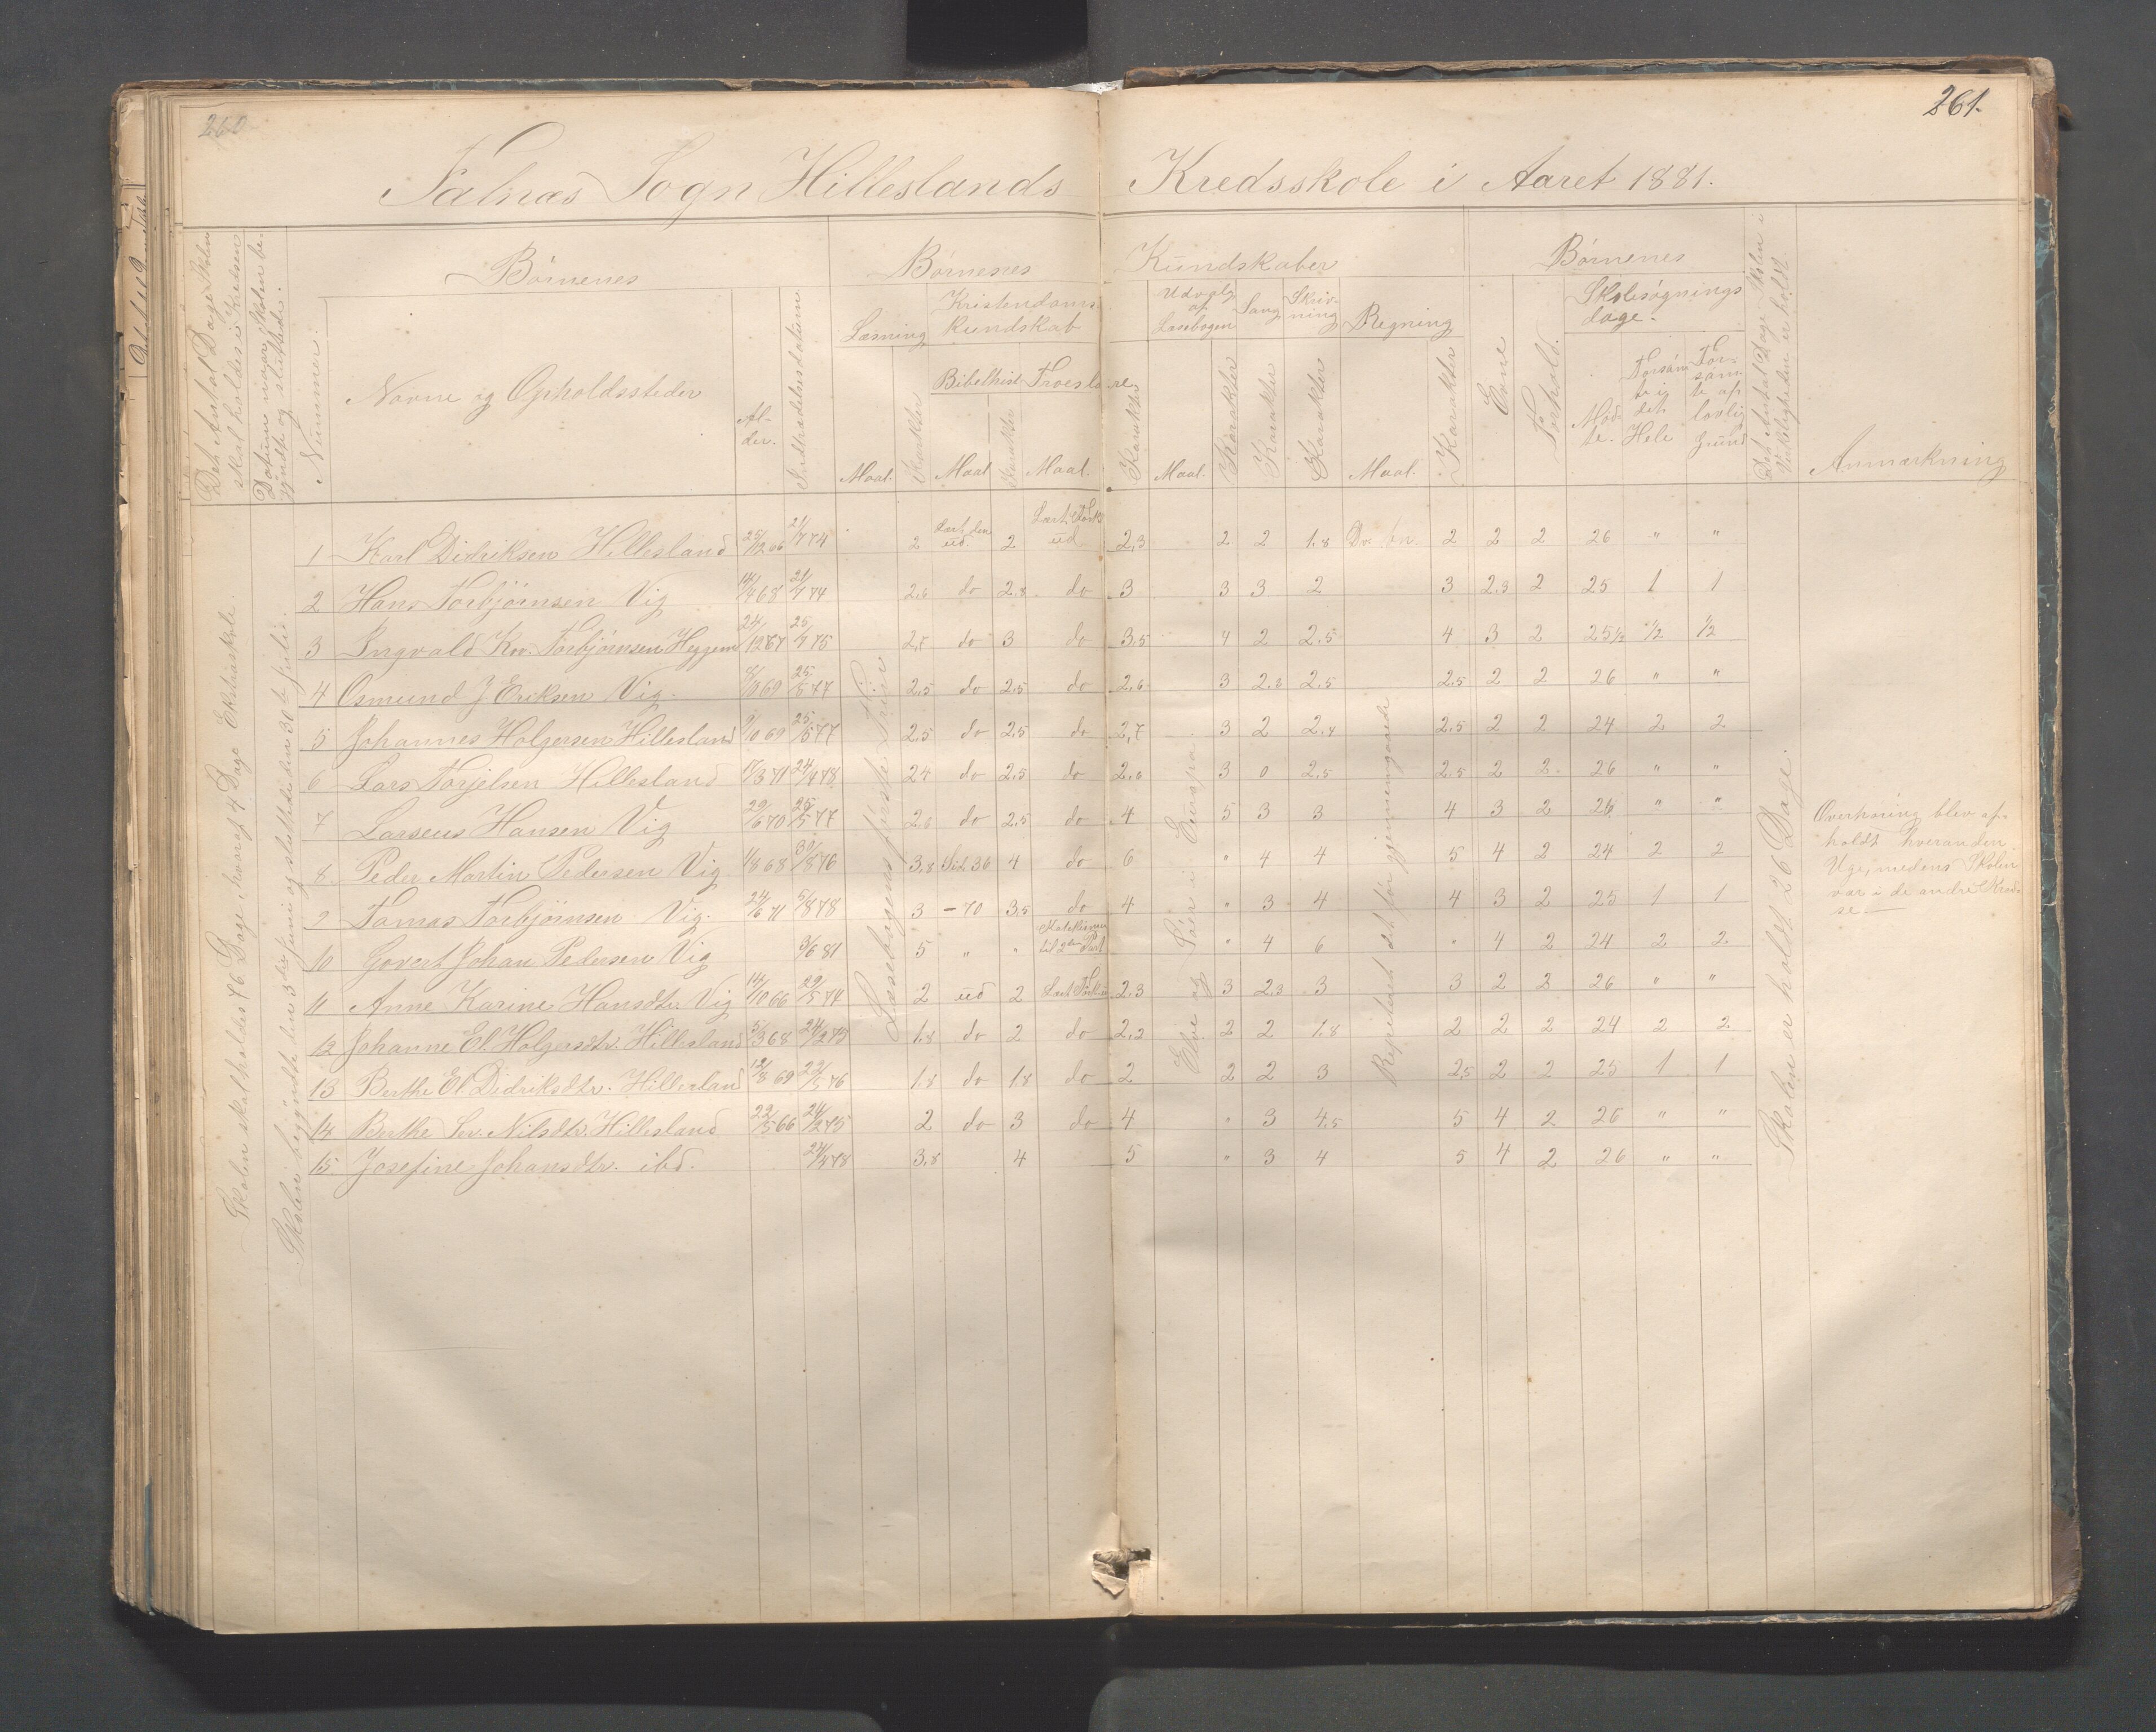 260
261.
Falnæs Sogn Hilleslands Kredsskole i Aaret 1881.
Det Antal Dage Skolen skal holdes i Kredsen
Datum naar Skolen begyndte og sluttede.
Nummer.
Børnenes
Navne og Opholdsteder
Alder.
Indtrædelsesdatum
Børnenes Kundskaber
Læsning
Maal. Karakter
Kristendomskundskab
Bibelhist. Troeslære
Maal Karakter Maal. Karakter
Udvalg af Læsebogen
Maal. Karakter
Sang
Karakter
Skrivning
Karakter
Regning
Maal. Karakter
Børnenes
Evne
Forhold.
Skolesøgningsdage.
Mødte.
Forsømte i det Hele
Forsømte af lovlig Grund
Det Antal Dage Skolen i Virkeligheden er holdt.
Anmærkning
Skolen skal holdes 76 Dage, hvoraf 4 Dage Extraskole.
Skolen begyndte den 3die Juni og sluttede den 30te Julie.
Læsebogens første Trin
Repiteret det før gjennemgaaede
Skolen er holdt 26 Dage.
1 Karl Didriksen Hillesland 25/12 66 21/7 74 2 Lært den ud. 2 Lært Forkl. ud 2,3 2 2 1.8 2 2 2 26 " "
2 Hans Torbjörnsen Vig 14/4 68 21/7 74 2.6 do 2.8 do 3 3 3 2 3 2.3 2 25 1 1
3 Ingvald Kor. Torbjörnsen Heggem 24/12 67 25/7 75 2,5 do 3 do 3.5 4 2 2.5 4 3 2 25½ ½ ½
4 Osmund J Eriksen Vig. 8/10 69 25/5 77 2,5 do 2,5 do 2,6 3 2.8 2.5 2.5 2 2 26 " "
5 Johannes Holgersen Hillesland 9/10 69 25/5 77 2.5 do 2,5 do 2,7 3 2 2.4 2.5 2 2 24 2 2
6 Lars Torjelsen Hillesland 17/3 71 24/4 78 2.4 do 2,5 do 2,6 3 0 2,5 2.5 2 2 26 " "
7 Larseus Hansen Vig 29/6 70 25/5 77 2.6 do 2,5 do 4 5 3 3 4 3 2 26 " "
8. Peder Martin Pedersen Vig 1/8 68 30/8 76 3,8 Sid. 36 4 do 6 " 4 4 5 4 2 24 2 2
9 Tomas Torbjörnsen Vig. 24/6 71 5/8 78 3 - 70 3,5 do 4 " 3 4 4 3 2 25 1 1
10 Govert Johan Pedersen Vig 3/6 81 5 " " Katekismen til 2den Part " 4 6 " 4 2 24 2 2
11 Anne Karine Hansdtr. Vig 14/10 66 29/5 74 2 ud 2 Lært Fork. 2,3 3 2.3 3 3 2 2 26 " "
12 Johanne El. Holgersdtr. Hillesland 5/3 68 24/2 75 1.8 do 2 do 2,2 2 2 1.8 2 2 2 24 2 2
13 Berthe El. Didriksdtr. Hillesland 12/8 69 22/5 76 1.8 do 1.8 do 2 2 2 3 2.5 2 2 25 1 1
14 Berthe Ser. Nilsdtr. Hillesland 22/5 66 24/2 75 2 do 3 do 4 " 3 4.5 5 4 2 26 " "
15. Josefine Johansdtr. ibd. 24/4 78 3.8 4 5 " 3 4 5 4 2 26 " "
Overhøring blev afholdt hveranden
Uge, medens Skolen
var i de andre Kredse.